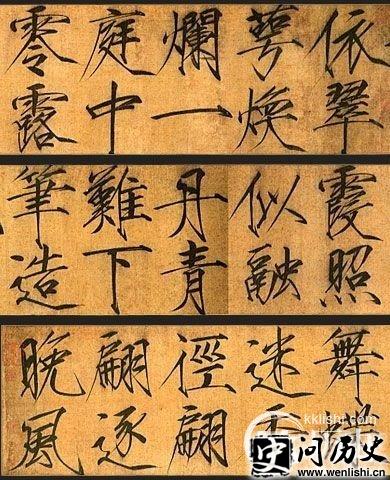 依翠
萼煥
爛一
庭中
零露
霞照
似融
丹青
難下
筆造
舞蝶
迷香
徑翩
翩逐
晚風
kklishi.com
问历史
www.wenlishi.cn